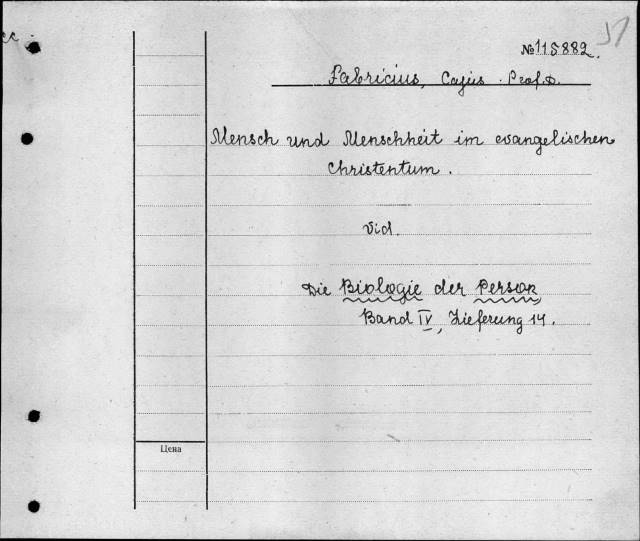 № 115882.
Fabricius, Cajus. Prof. D.
Mensch und Menschheit im evangelischen
Christentum.
Vid.
Die Biologie der Person,
Band IV, Lieferung 14.
Цена